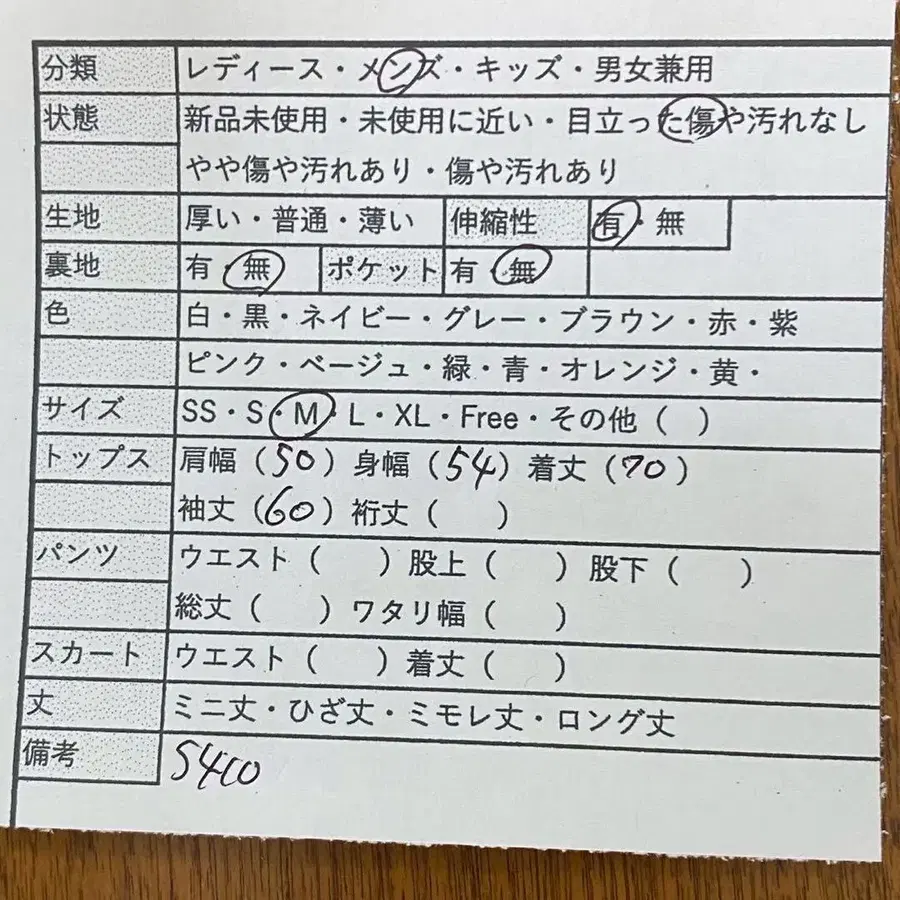 分類 レディース・メンズ・キッズ・男女兼用
状態 新品未使用・未使用に近い・目立った傷や汚れなし
やや傷や汚れあり・傷や汚れあり
生地 厚い・普通・薄い 伸縮性 有・無
裏地 有・無 ポケット 有・無
色 白・黒・ネイビー・グレー・ブラウン・赤・紫
ピンク・ベージュ・緑・青・オレンジ・黄・
サイズ SS・S・M・L・XL・Free・その他（ ）
トップス 肩幅（50）身幅（54）着丈（70）
袖丈（60）裄丈（ ）
パンツ ウエスト（ ）股上（ ）股下（ ）
総丈（ ）ワタリ幅（ ）
スカート ウエスト（ ）着丈（ ）
丈 ミニ丈・ひざ丈・ミモレ丈・ロング丈
備考